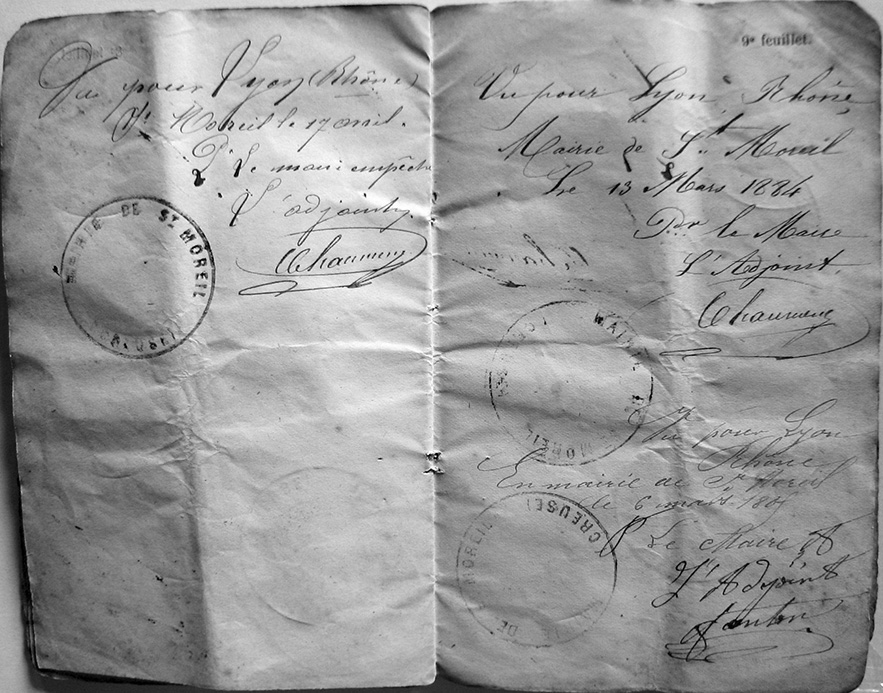 Vu pour Lyon (Rhône)
St Moreil le 17 avril.
Pr Le maire empêché
L'adjoint
Chaumeny
MAIRIE DE ST MOREIL
CREUSE
9e feuillet.
Vu pour Lyon, Rhône,
Mairie de St Moreil
Le 13 Mars 1884
Pour le Maire
L'Adjoint,
Chaumeny
MAIRIE DE MOREIL
Vu pour Lyon
Rhône
En mairie de St Moreil
le 6 mars
Le Maire
L'Adjoint
MAIRIE DE MOREIL
CREUSE